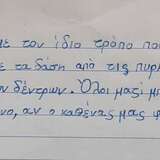 με τον ίδιο τρόπο πο
ε τα δάση από τις πυρ
ν δέντρων. Όλοι μαζί μ
νο, αν ο καθένας μας φ